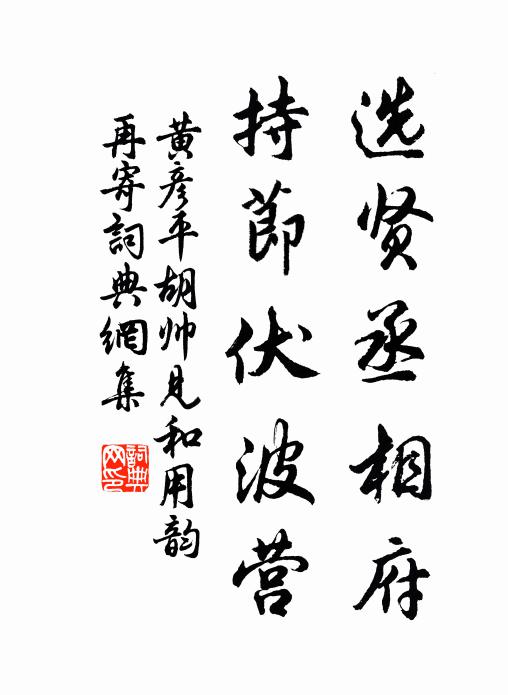 选贤丞相府
持节伏波营
黄彦平胡帅见和用韵
再寄詞典網集
詞典网印